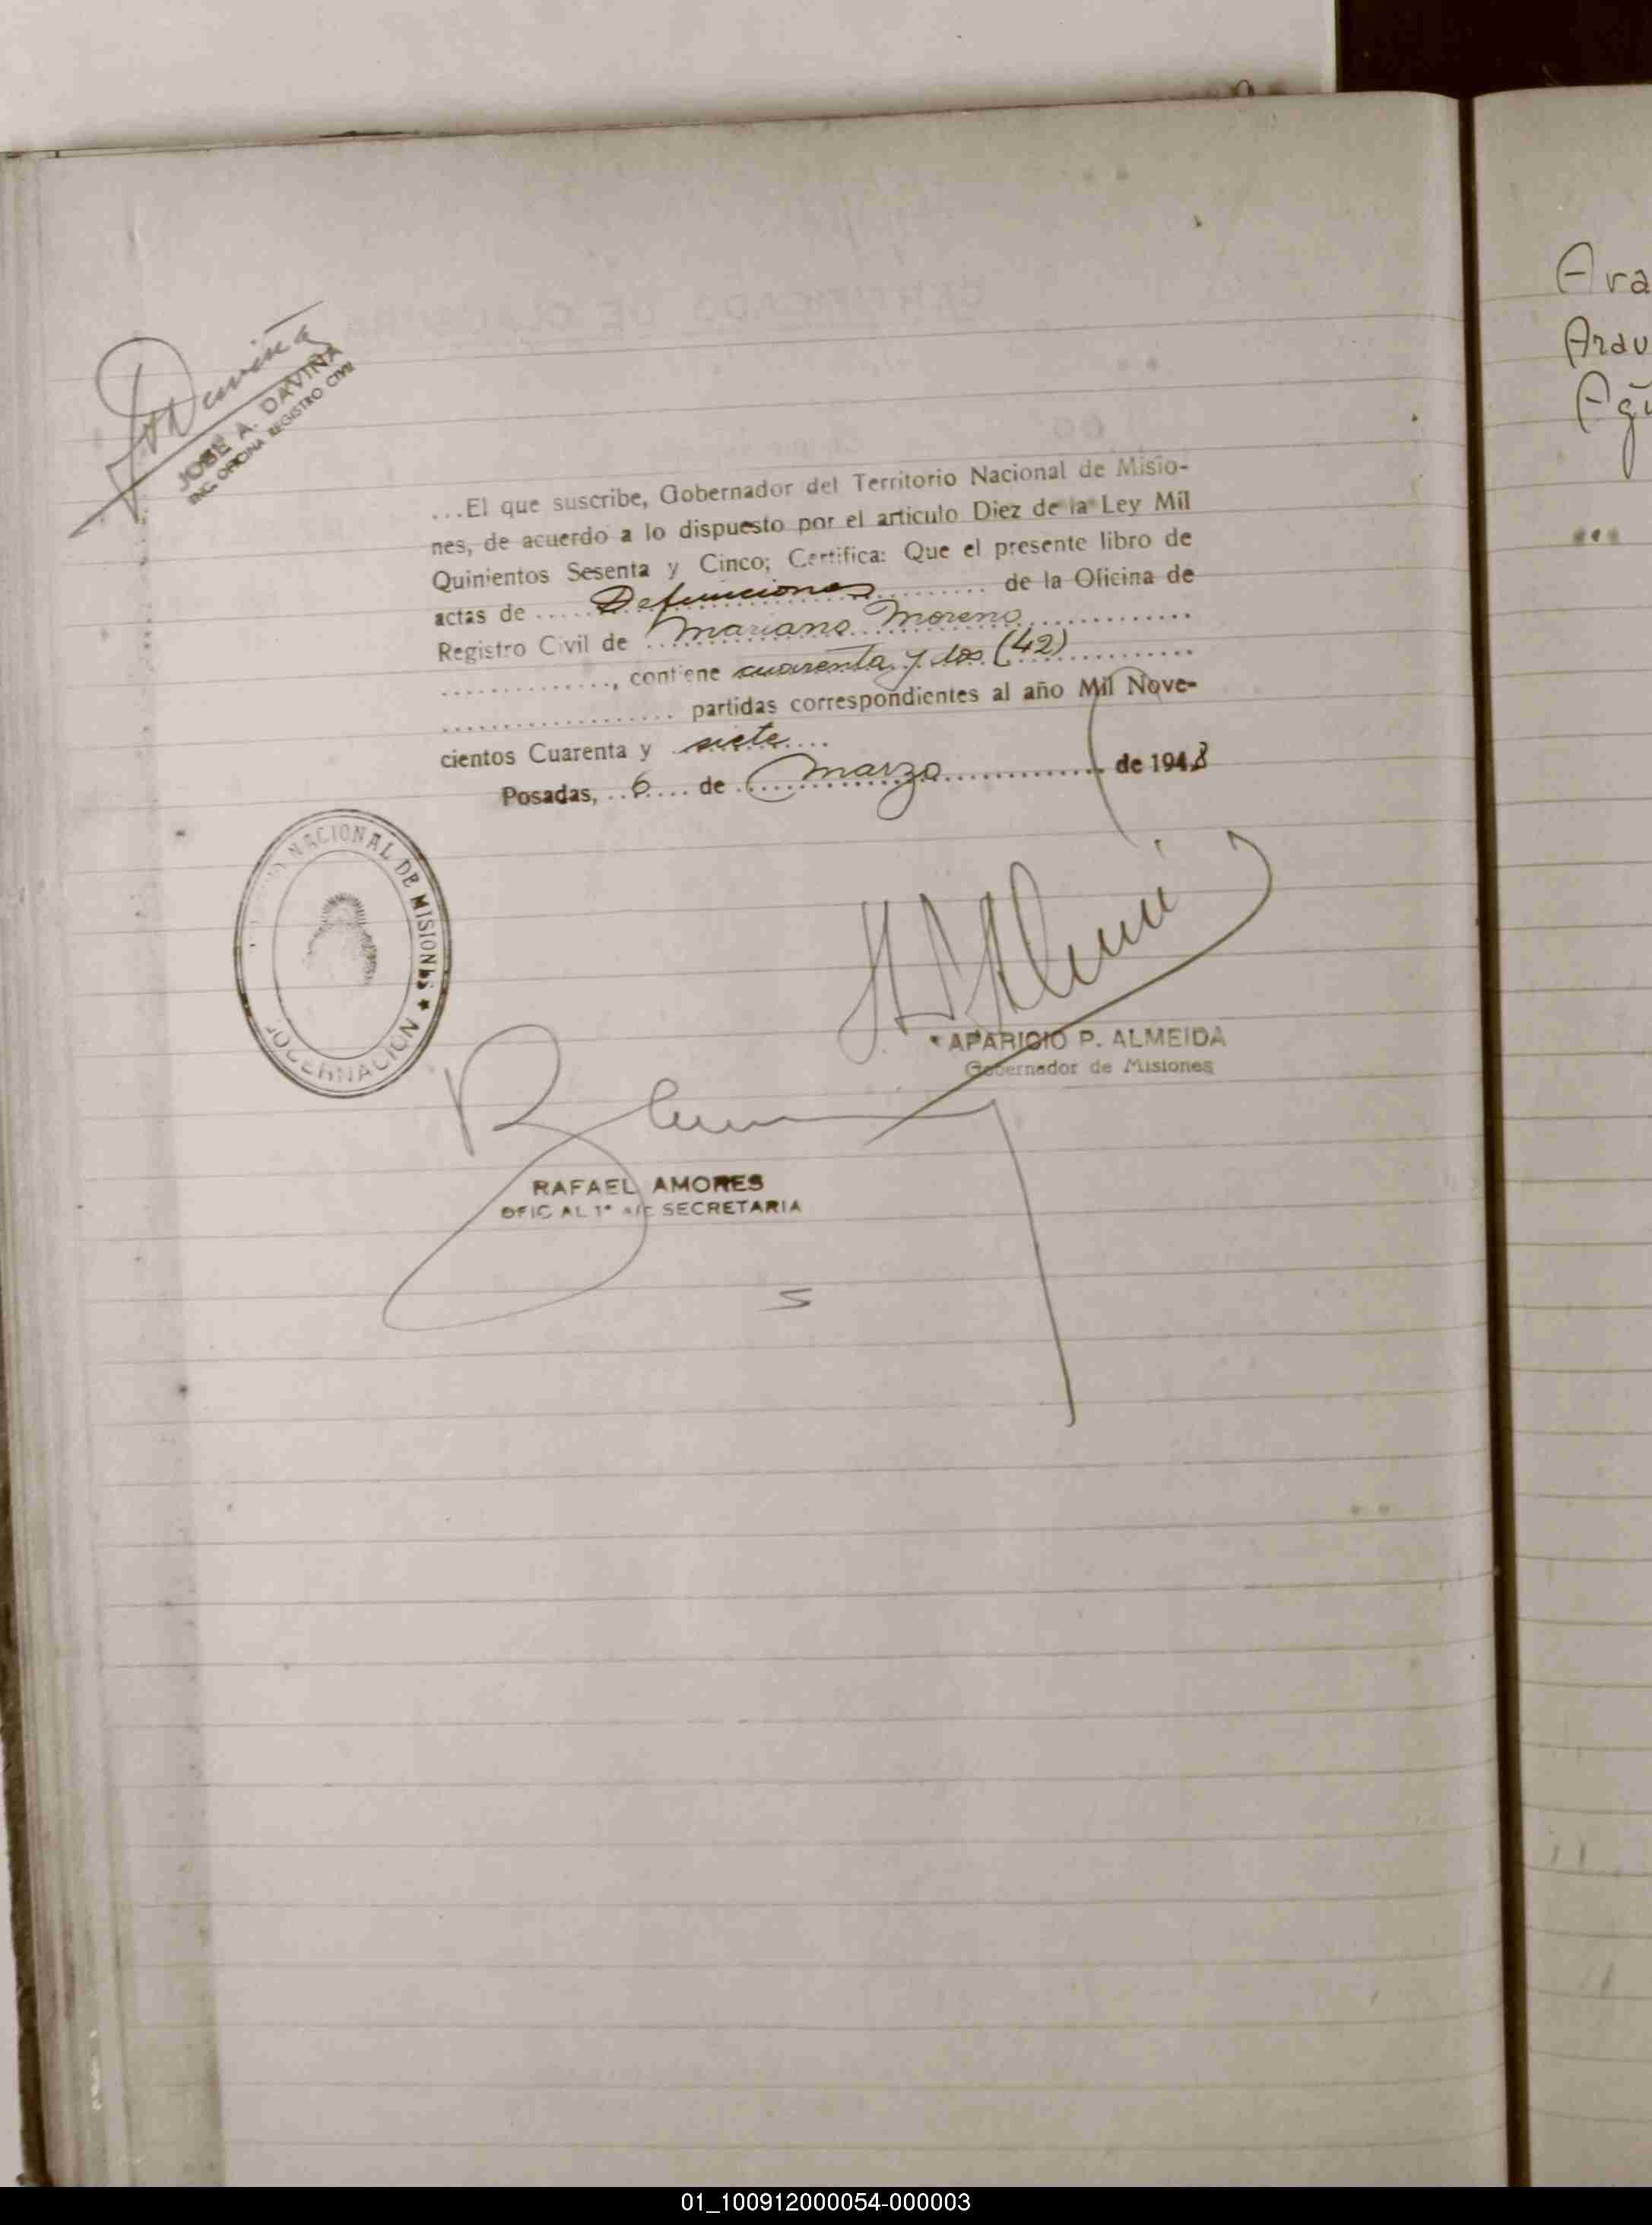 JOSE A. DAVIÑA
ENC. OFICINA REGISTRO CIVIL
...El que suscribe, Gobernador del Territorio Nacional de Misio-
nes, de acuerdo a lo dispuesto por el articulo Diez de la Ley Mil
Quinientos Sesenta y Cinco; Certifica: Que el presente libro de
actas de ..... Defunciones .......... de la Oficina de
Registro Civil de ... Mariano Moreno ..............
.............., contiene cuarenta y dos (42) ............
.................... partidas correspondientes al año Mil Nove-
cientos Cuarenta y siete ....
Posadas, .. 6 .... de ... Marzo .............. de 1948
NACIONAL DE MISIONES ★
GOBERNACION
APARICIO P. ALMEIDA
Gobernador de Misiones
RAFAEL AMORES
OFICIAL 1° A/C SECRETARIA
5
Ara
Arau
01_100912000054-000003